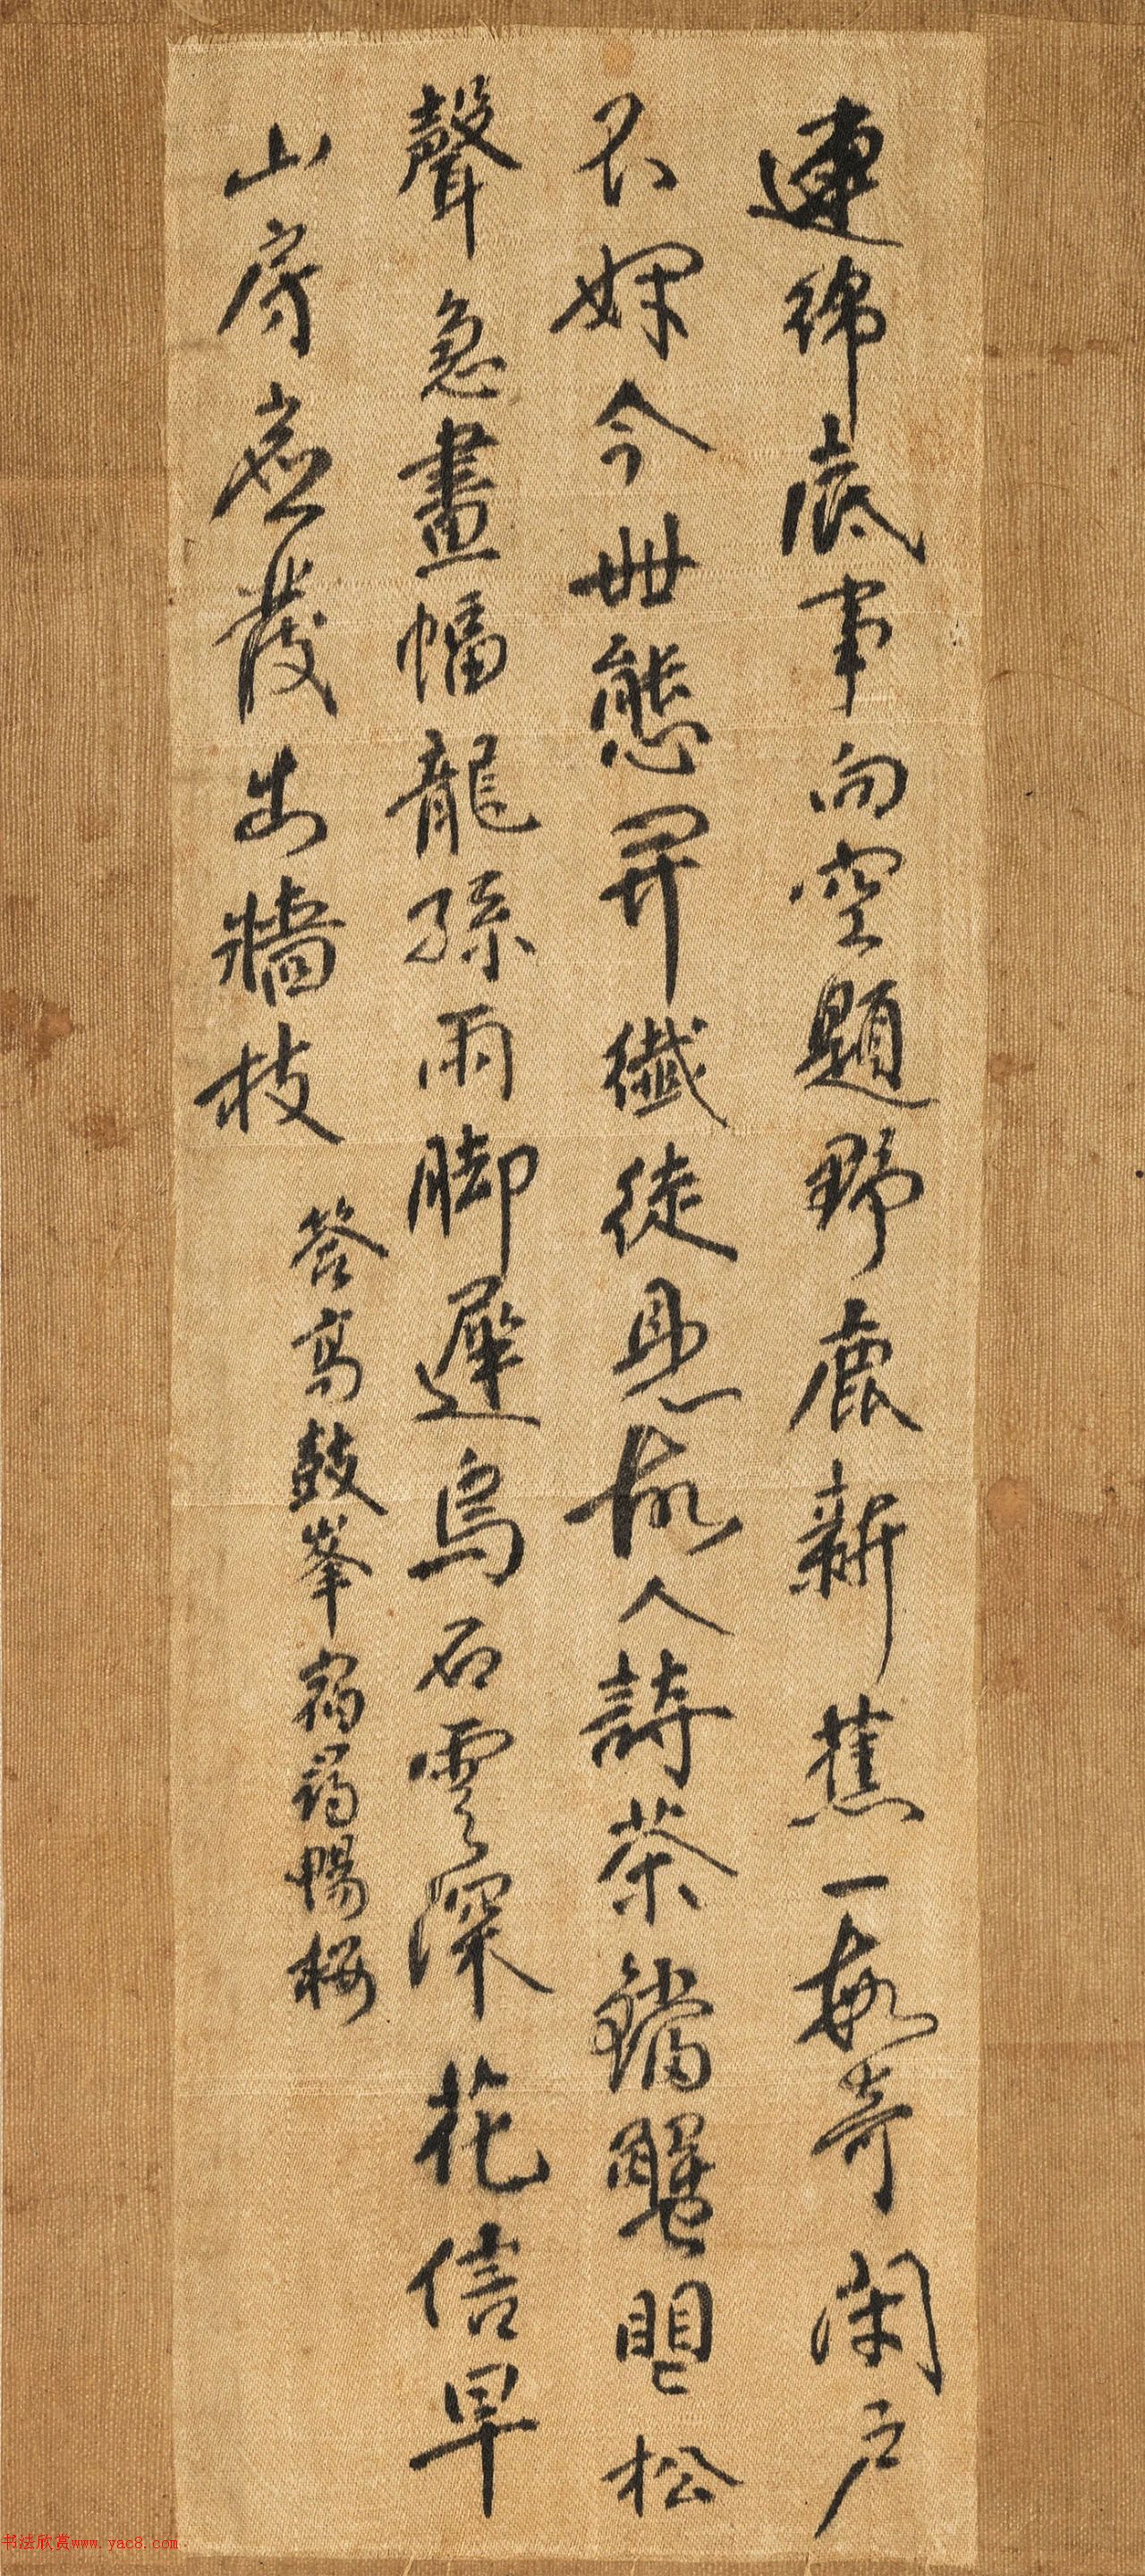 連綿底事向空題野鹿新蕉一段奇閉戶
不嫌今世態開緘徒見故人詩茶鐺蟹眼松
聲急畫幅龍孫雨腳遲烏石雲深花信早
山房應發出牆枝
答高鼓峯宿暢樓
书法欣赏www.yac8.com